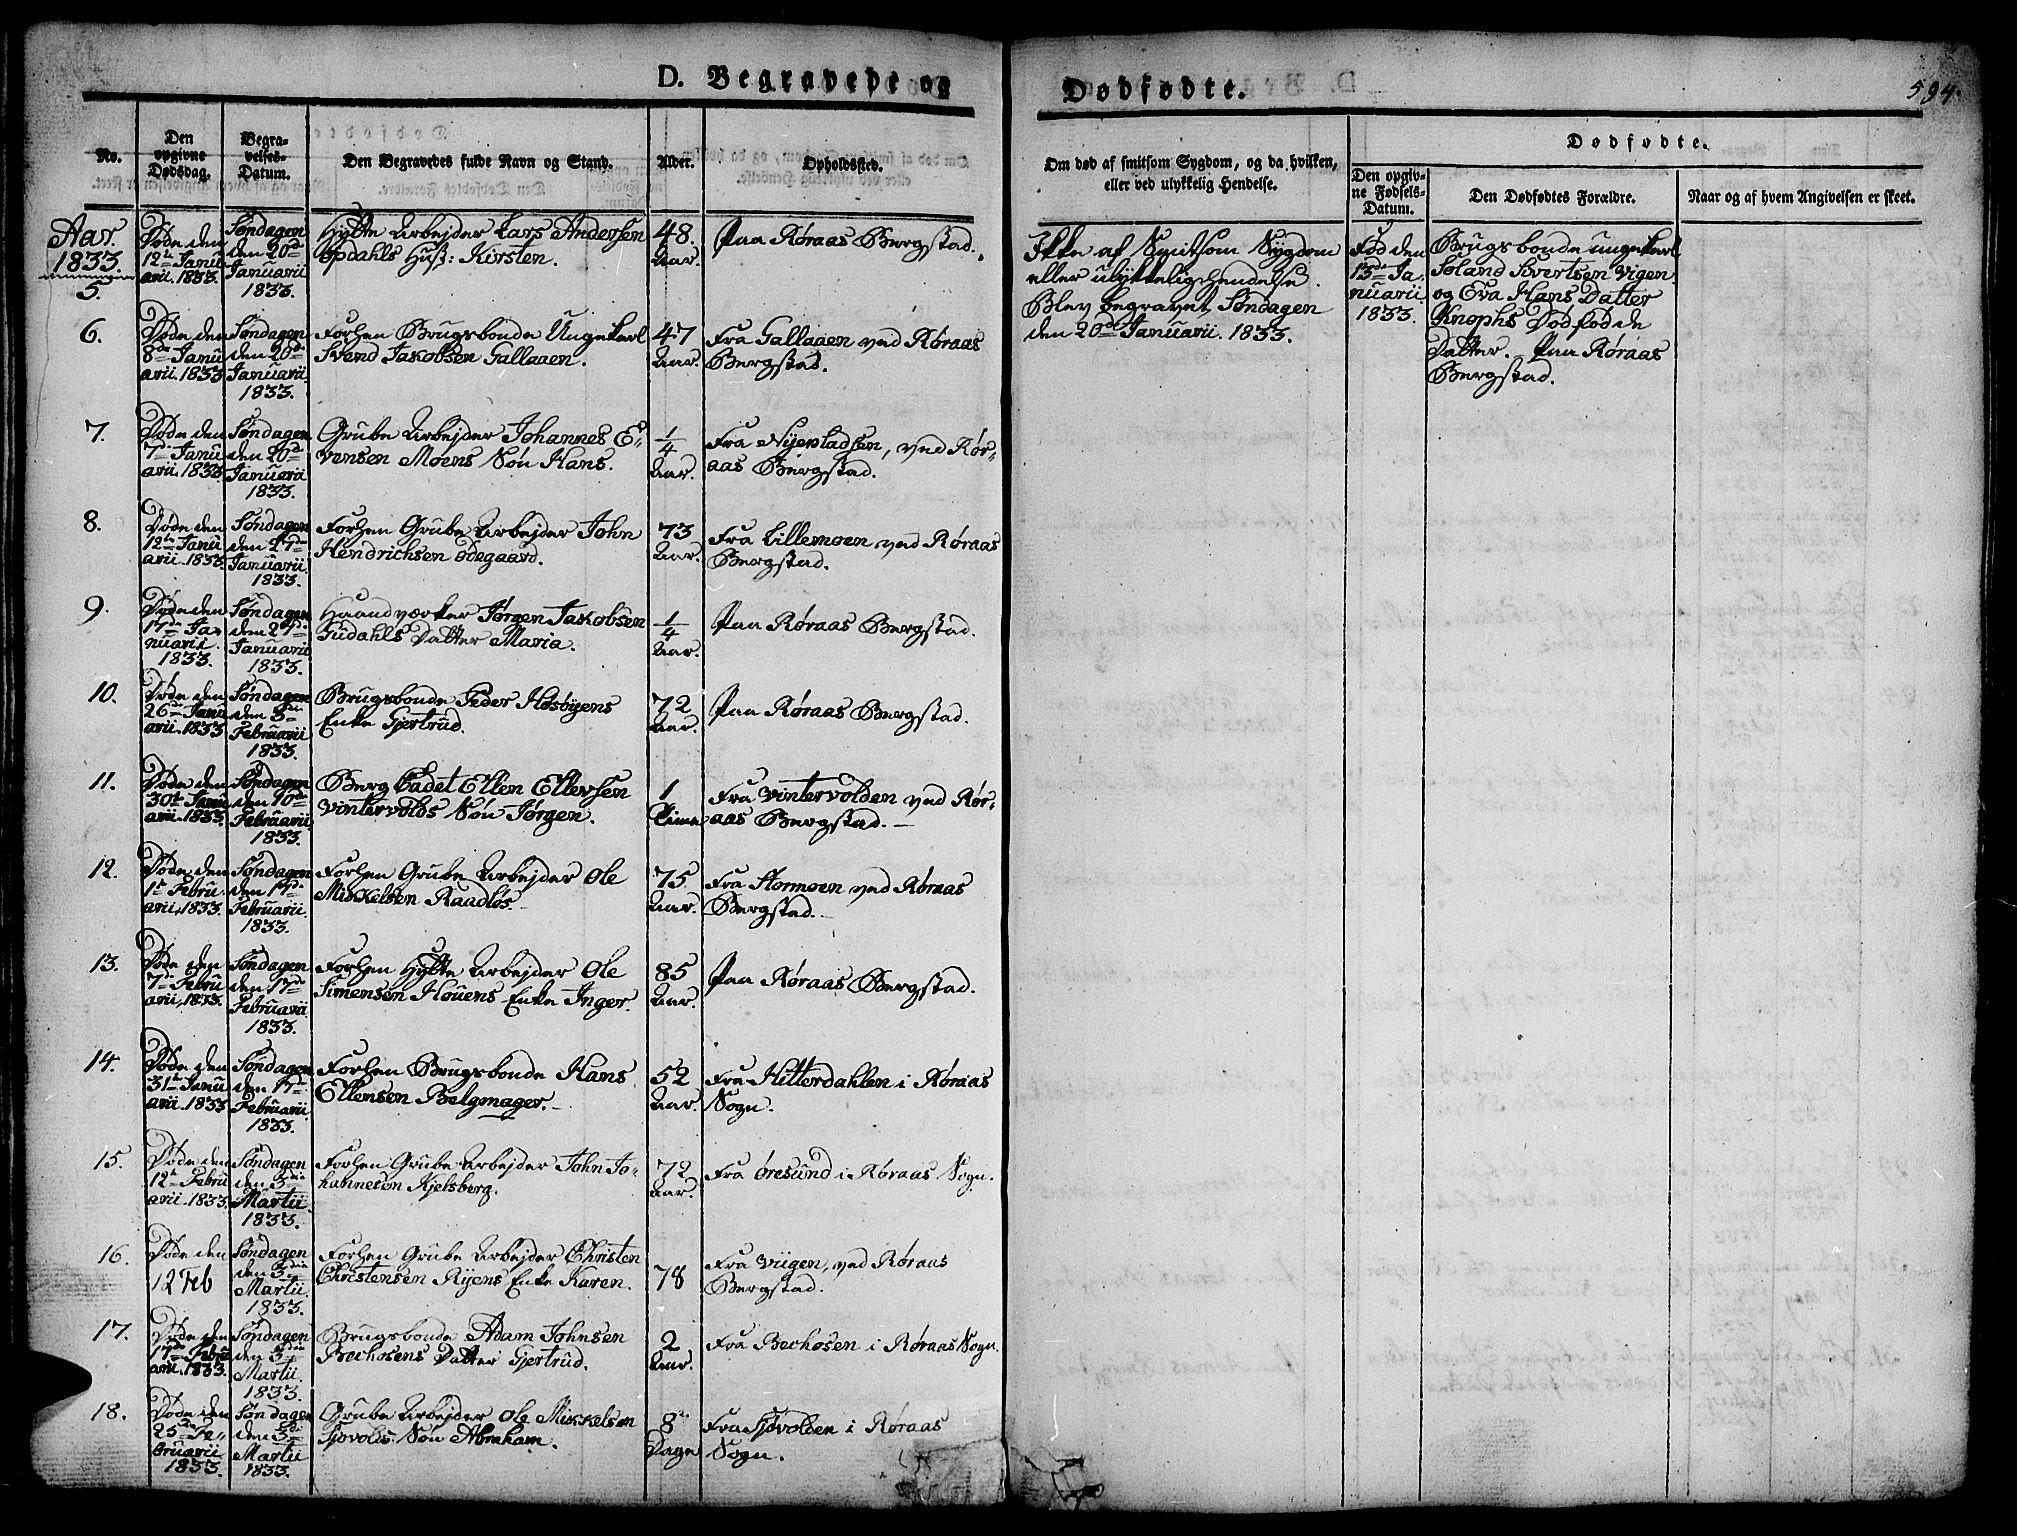 D. Begravede og
Dødfødte.
594.
No.
Den
opgivne
Dødsdag.
Begra-
velses-
Datum.
Den Begravedes fulde Navn og Stand.
Alder.
Opholdssted.
Om død af smitsom Sygdom, og da hvilken,
eller ved ulykkelig Hendelse.
Dødfødte.
Den opgiv-
ne Fødsels-
Datum.
Den Dødfødtes Forældre.
Naar og af hvem Angivelsen er skeet.
Aar.
1833.
5.
Døde den
12te Janu
arii. 1833
Søndagen
den 20de
Januarii
1833.
Hytte Arbejder Lars Andersen
Opdahls Huß: Kirsten.
48.
Aar.
Paa Røraas Bergstad.
Ikke af Smitsom Sygdom
eller ulykkelig Hendelse.
Blev begravet Søndagen
den 20de Januarii. 1833.
Fød den
13de Ja
nuarii.
1833.
Brugsbonde ungekarl
Soland Sivertsen Vigen
og Eva Hans Datter
Knophs Dødfødde
Datter. – Paa Røraas
Bergstad.
6.
Døde den
8de Janu
arii. 1833
Søndagen
den 20de
Januarii.
1833.
Forhen Brugsbonde Ungekarl
Svend Jakobsen Gallaaen.
47
Aar.
Fra Gallaaen ved Røraas
Bergstad.
7.
Døde den
7de Janu
arii. 1833
Søndagen
den 20de
Januarii
1833.
Grube Arbejder Johannes E-
vensen Møens Søn Hans.
1/4
Aar.
Fra Nyepladsen, ved Rør-
aas Bergstad.
8.
Døde den
12te Janu
arii. 1833
Søndagen
den 27de
Januarii.
1833.
Forhen Grube Arbejder John
Hendrichsen Ødegaard.
73
Aar.
Fra Lillemoen ved Røraas
Bergstad.
9.
Døde den
17de Ja-
nuarii.
1833.
Søndagen
den 27de
Januarii
1833.
Haandværker Jørgen Jakobsen
Sudahls Datter Maria.
1/4
Aar.
Paa Røraas Bergstad.
10.
Døde den
26de Janu
arii. 1833
Søndagen
den 3die
Februarii
1833.
Brugsbonde Peder Høsøyens
Enke Gjertrud.
72
Aar.
Paa Røraas Bergstad.
11.
Døde den
30te Janu
arii. 1833.
Søndagen
den 10de
Februarii.
1833.
Berg Cadet Ellen Ellevsen
Vintervolds Søn Jørgen.
1
Time
Fra Vintervolden ved Rør-
aas Bergstad. –
12.
Døde den
1te Febru
arii. 1833.
Søndagen
den 17de
Februarii.
1833.
Forhen Grube Arbejder Ole
Mikkelsen Raadløs.
75
Aar.
Fra Stormoen ved Røraas
Bergstad. –
13.
Døde den
7de Febru
arii. 1833.
Søndagen
den 17de
Februarii.
1833.
Forhen Hytte Arbejder Ole
Simensen Houens Enke Inger.
85
Aar.
Paa Røraas Bergstad.
14.
Døde den
31te Janu
arii. 1833
Søndagen
den 17de
Februarii.
1833.
Forhen Brugsbonde Hans
Ellensen Belgmager. –
52
Aar.
Fra Hitterdahlen i Røraas
Sogn.
15.
Døde den
12te Febru
arii. 1833.
Søndagen
den 3die
Martii.
1833.
Forhen Grube Arbejder John Jo-
hannesen Kjelsberg.
72
Aar.
Fra Øresund i Røraas Sogn.
16.
Døde den
12 Feb
Søndagen
den 3die
Martii
1833.
Forhen Grube Arbejder Christen
Christensen Ryens Enke Karen.
78
Fra Viigen, ved Røraas
Bergstad.
17.
Døde den
17de Febru
arii. 1833.
Søndagen
den 3die
Martii.
1833.
Brugsbonde Adam Johnsen
Bechosens Datter Gjertrud.
2
Aar.
Fra Bechosen i Røraas Sogn.
18.
Døde den
25de Fe-
bruarii
1833.
Søndagen
den 3die
Martii
1833.
Grube Arbejder Ole Mikkelsen
Sjøvolds Søn Abraham.
8
Dage
Fra Sjøvolden i Røraas
Sogn.